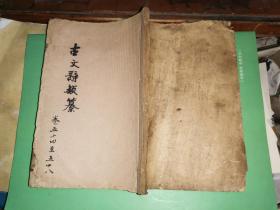 古文辭類纂
卷五十四至五十八